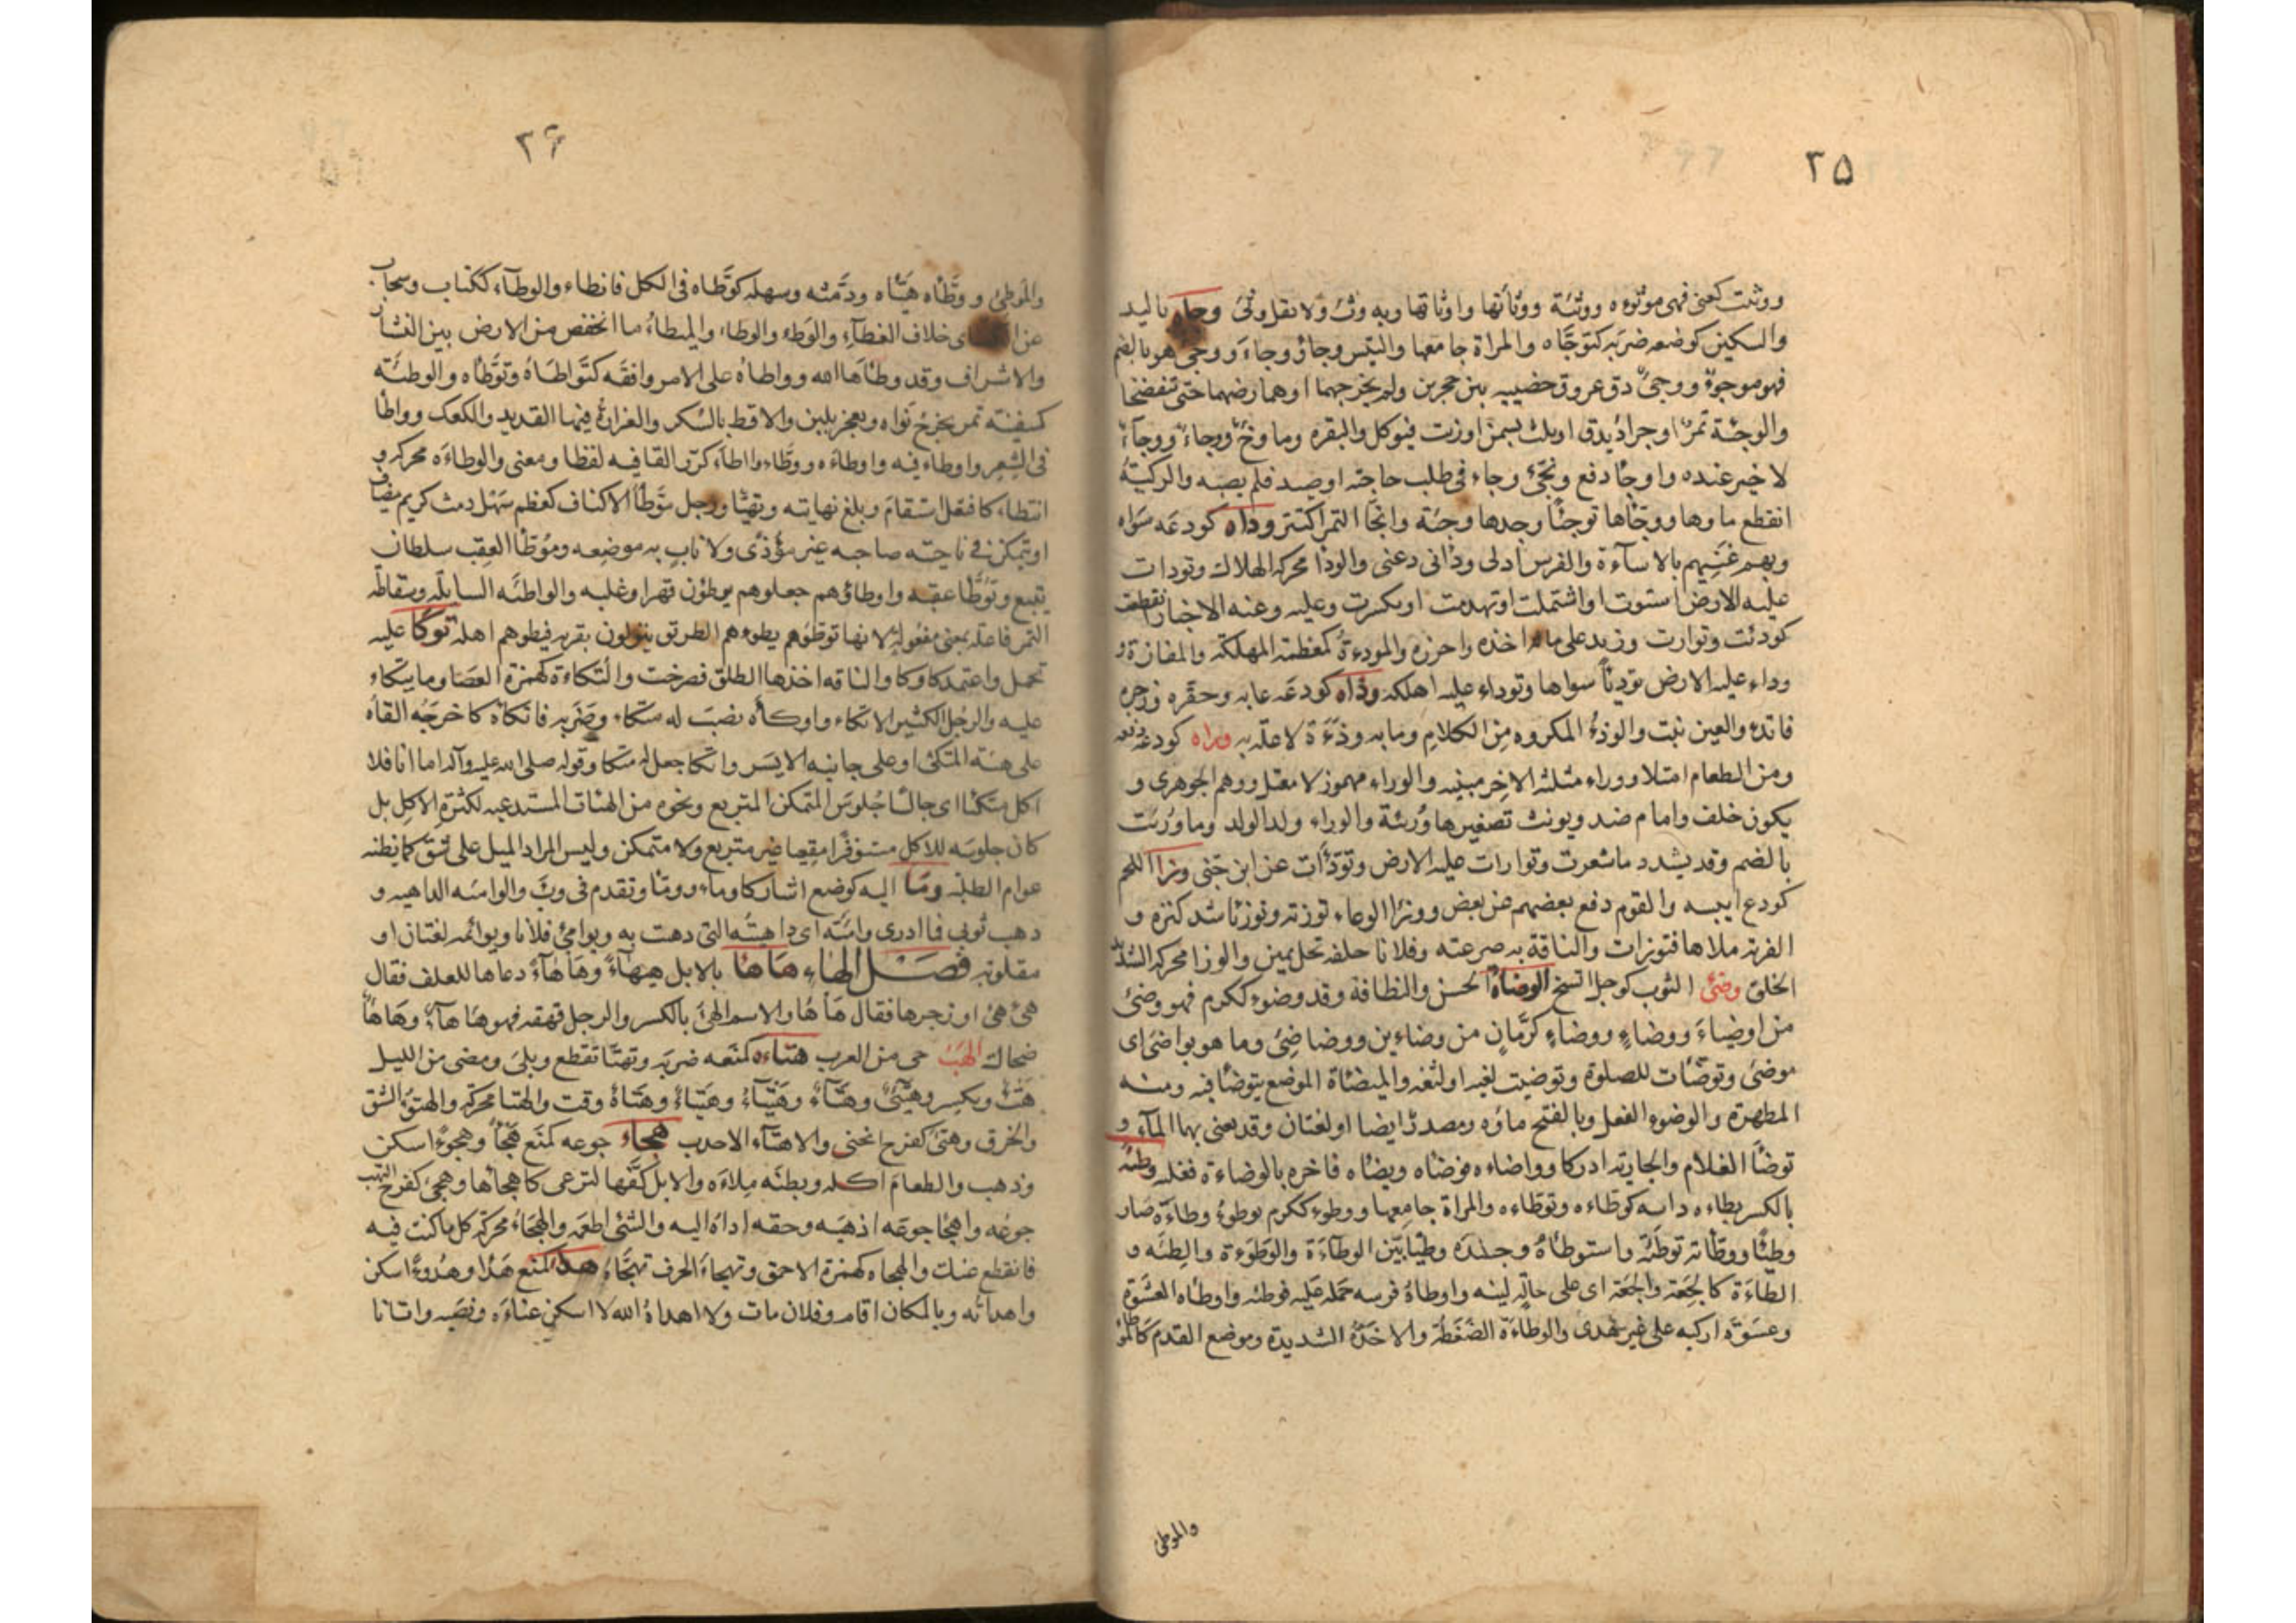 ۲۵
ووثئت كعنى فهى موثوءه ووثئة ووثأتها واوثاتها وبه وثئ ولا تقل وثى وجاه باليد
والسكين كوضعه ضربه كتوجاه والمراة جامعها والتيس وجاؤ وجاء ووجى هو بالضم
فهو موجوء ووجئ دق عروق خصييه بين حجرين ولم يخرجهما او هما رضهما حتى تنفضخا
والوجئة تمر او جراد يدق او يلت بسمن او زيت فيوكل والبقره وما وجء ووجاء ووجآء
لا خير عنده واوجا دفع ونحى وجاء فى طلب حاجته او صيد فلم يصبه والركية
انقطع ماوها ووجاها توجئا وجدها وجئة واتجا التمر اكتنز وداه كودعه سواه
وبهم غشيهم بالاسآءة والفرس ادلى ودانى دعنى والودا محركه الهلاك وتودات
عليه الارض استوت او اشتملت او تهدمت او تكسرت وعليه وعنه الاخبار انقطعت
كودئت وتوارت وزيد على ماله اخذه واحرزه والموداة كمعظمة المهلكة والمفازة و
وداء عليه الارض توديا سواها وتوداء عليه اهلكه وذاه كودعه عابه وحقره وزجره
فاتذء والعين نبت والوذء المكروه من الكلام وما به وذءة لا علة به وراه كودعه دفعه
ومن الطعام امتلا ووراء مثلثة الاخر مبنيه والوراء مهموز لا معتل ووهم الجوهرى و
يكون خلف وامام ضد ويونث تصغيرها وريئة والوراء ولد الولد وما ورئت
بالضم وقد يشدد ما شعرت وتوارات عليه الارض وتودأت عن ابن جنى وزا اللحم
كودع ايبسه والقوم دفع بعضهم عن بعض ووزا الوعاء توزئة وتوزئا شد كنزه و
القربة ملاها فتوزات والناقة به صرعته وفلانا حلفه بكل يمين والوزا محركه الشديد
الخلق وضئ الثوب كوجل اتسخ الوضاة الحسن والنظافة وقد وضوء ككرم فهو وضئ
من اوضياء ووضاء ووضاء كرمان من وضاءين ووضاضئ وما هو بواضئ اى
موضئ وتوضأت للصلوة وتوضيت لغيه او لثغه والميضاة الموضع يتوضا فيه ومنه
المطهرة والوضوء الفعل وبالفتح ماؤه ومصدر ايضا او لغتان وقد يعنى بهما المآء و
توضأ الغلام والجاريه ادركا وواضاءه فوضاه ويضاه فاخره بالوضاءة فغلبه وطئه
بالكسر يطاءه داسه كوطاءه وتوطاءه والمراة جامعها ووطوء ككرم يوطوء وطاءة صار
وطيئا ووطأته توطئة واستوطأه وجده وطيا بين الوطآءة والوطوءة والطئه و
الطاءة كالجعة والجعة اى على حالة لينه واوطاه فرسه حمله عليه فوطئه واوطاه العشوة
وعشوة اركبه على غير هدى والوطاءة الضغطة والاخذة الشديدة وموضع القدم كالموطا
والموطئ
۲۶
والموطئ ووطأه هيأه ودمثه وسهله كوطاه فى الكل فاتطاء والوطآء ككتاب وسحاب
عن الكسائى خلاف الغطآء والوطء والوطاء والميطاء ما انخفض من الارض بين النشاز
والاشراف وقد وطأها الله وواطاه على الامر وافقه كتواطأه وتوطاه والوطئه
كسفينة تمر يخرج نواه ويعجن بلبن والاقط بالسكر والغرارة فيها القديد والكعك وواطا
فى الشعر واوطاء فيه واوطاءه ووطاء واطاء كرر القافيه لفظا ومعنى والوطاءه محركه و
اتطاء كافتعل استقام وبلغ نهايته وتهيا ورجل موطأ الاكناف كمعظم سهل دمث كريم مضياف
او يتمكن فى ناحيته صاحبه غير مؤذى ولا ناب به موضعه وموطأ العقب سلطان
يتبع وتوطا عقبه واوطاؤهم جعلوهم يوطؤن قهرا وغلبه والواطئه السابله وسقاطة
التمر فاعله بمعنى مفعوله لانها توطؤ هم يطوءهم الطريق ينزلون بقربه فيطوهم اهله توكا عليه
تحمل واعتمد كاوكا والناقه اخذها الطلق فصرخت والتكاءة كهمزة العصا وما يتكاء
عليه والرجل الكثير الاتكاء واوكأه نصب له متكاء وضربه فاتكأه كاخرجه القاه
على هيئة المتكئ او على جانبه الايسر واتكا جعل له متكا وقوله صلى الله عليه وآله اما انا فلا
اكل متكئا اى جالسا جلوس المتمكن المتربع ونحوه من الهئات المستدعيه لكثرة الاكل بل
كان جلوسه للاكل مستوفزا مقعيا غير متربع ولا متمكن وليس المراد الميل على شق كما يظنه
عوام الطلبة وما اليه كوضع اشار كاوماء وومأ وتقدم فى وبا والوامئه الداهيه و
ذهب ثوبى فما ادرى وامئته اى داهيته التى ذهبت به ويوامئ فلانا ويوائمه لغتان او
مقلوبه فصل الهاء هاها بالابل هيهاء وهاهاء دعاها للعلف فقال
هئ هئ او زجرها فقال هأ هأ والاسم الهئ بالكسر والرجل قهقه فهو هاهآء وهاها
ضحاك الهب حى من العرب هتاءه كمنعه ضربه وتهتا تقطع وبلى ومضى من الليل
هتء ويكسر وهتئ وهتاء وهيتاء وهتأة وقت والهتا محركه والهتوء الشق
والخرق وهتئ كفرح انحنى والاهتآء الاحدب هجاء جوعه كمنع هجأ وهجوءا سكن
وذهب والطعام اكله وبطنه ملاءه والابل كفها لترعى كاهجأها وهجئ كفرح التهب
جوعه واهجا جوعه اذهبه وحقه اداه اليه والشئ اطعمه والهجاء محركه كل ما كنت فيه
فانقطع عنك والهجاه كهمزة الاحمق وتهجاء الحرف تهجاه هدا كمنع هدأ وهدوءا سكن
واهدأته وبالمكان اقام وفلان مات ولا اهداه الله لا اسكن عناءه ونصبه واتانا